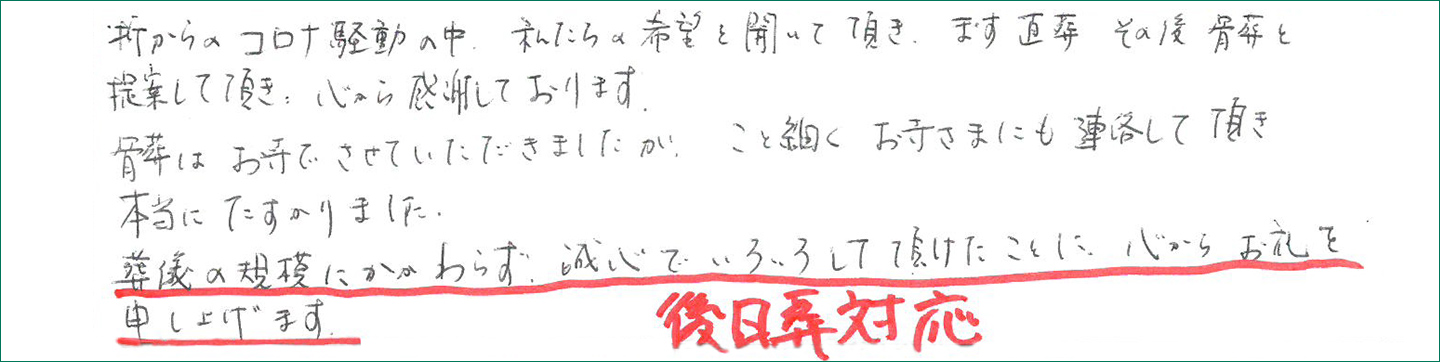 折からのコロナ騒動の中、私たちの希望を聞いて頂き、まず直葬 その後骨葬と
提案して頂き、心から感謝しております。
骨葬はお寺でさせていただきましたが、こと細く お寺さまにも連絡して頂き
本当にたすかりました。
葬儀の規模にかかわらず、誠心でいろいろして頂けたことに、心からお礼を
申し上げます。
後日葬対応